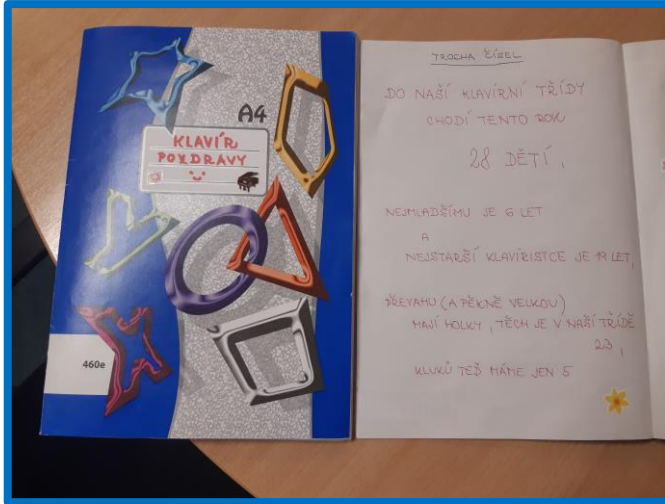 A4
KLAVÍR
POZDRAVY
460e
TROCHA ČÍSEL
DO NAŠÍ KLAVÍRNÍ TŘÍDY
CHODÍ TENTO ROK
28 DĚTÍ,
NEJMLADŠÍMU JE 6 LET
A
NEJSTARŠÍ KLAVÍRISTCE JE 19 LET,
PŘEVAHU (A PĚKNĚ VELKOU)
MAJÍ HOLKY, TĚCH JE V NAŠÍ TŘÍDĚ
23,
KLUKŮ TEĎ MÁME JEN 5